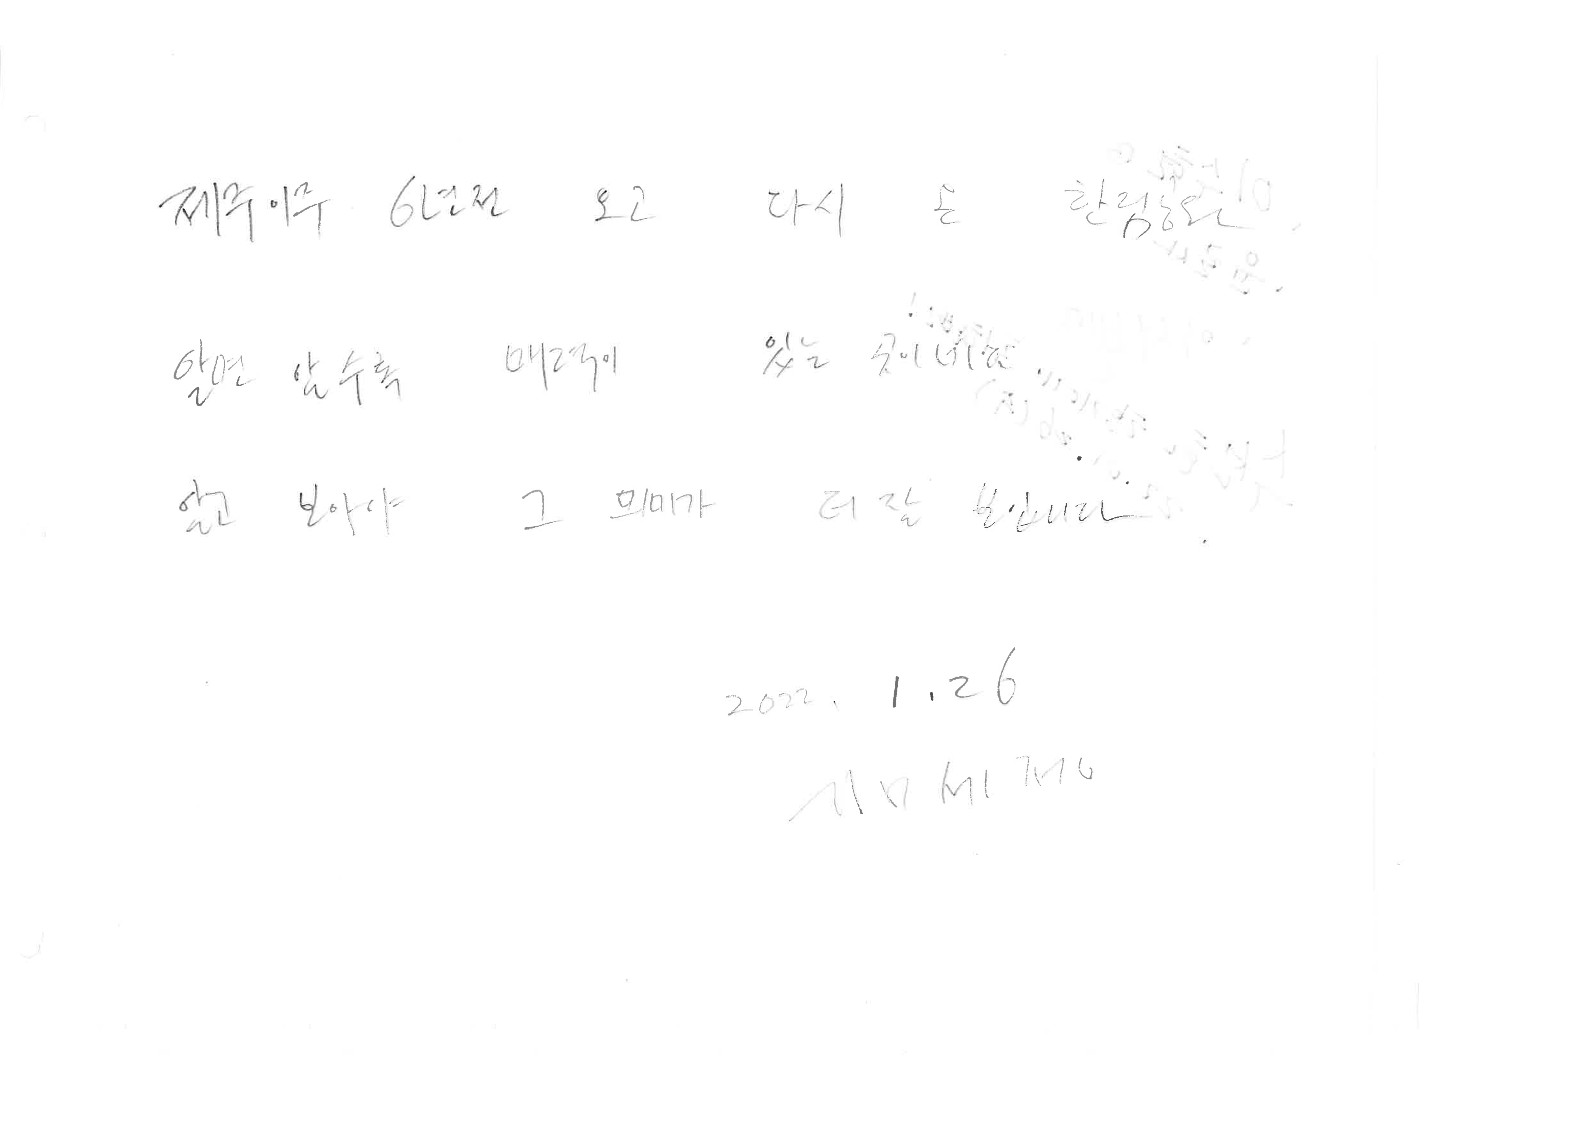 제주이주 6년전 오고 다시 온 한림공원.
알면 알수록 매력이 있는 곳이네요.
알고 보아야 그 의미가 더 잘 보입니다.
2022. 1.26